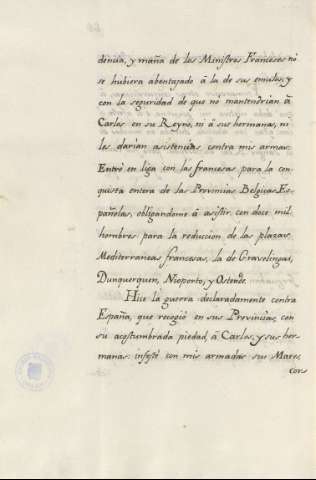 dencia, y maña de los Ministros Franceses no
se hubiera abentajado â la de sus emulos, y
con la seguridad de que no mantendrian â
Carlos en su Reyno, ni â sus hermanas, ni
les darian asistencias contra mis armas.
Entrè en liga con las francesas para la con-
quista entera de las Provincias Belgicas Es-
pañolas, obligandome â asistir con doce mil
hombres para la reduccion de las plazas
Mediterraneas francesas, la de Gravelingas,
Dunquerquen, Nioporto, y Ostende.
Hice la guerra declaradamente contra
España, que recogiò en sus Provincias, con
su acostumbrada piedad, â Carlos, y sus her-
manas: infestè con mis armadas sus Mares,
cors